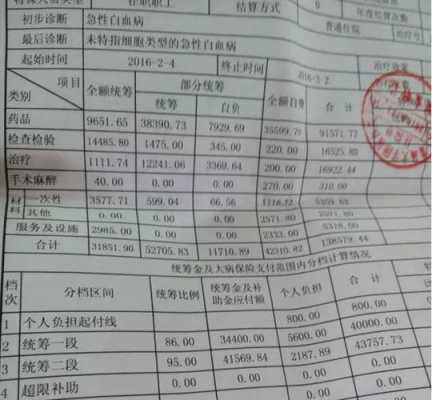 在职职工 结算方式 0
初步诊断 急性白血病 普通住院
最后诊断 未特指细胞类型的急性白血病 治疗号
起始时间 2016-2-4 终止时间 2016-3-2
类别 项目 全额统筹 部分统筹 全额自 合 计
统筹 自负
药品 9651.65 38390.73 7929.69 35599.70 91571.77
检查检验 14485.80 1475.00 345.00 220.00 16525.80
治疗 1111.74 12241.06 3369.64 200.00 16922.44
手术麻醉 40.00 0.00 0.00 270.00 310.00
材料 一次性 3577.71 599.04 66.56
其他 0.00 0.00 0.00 2571.80 2571.80
服务及设施 2985.00 0.00 0.00 2333.00 5318.00
合计 31851.90 52705.83 11710.89 42310.82 138579.44
统筹金及大病保险支付范围内分档计算情况
档次 分档区间 统筹比例 统筹金及补助金应付额 个人负担 合 计
1 个人负担起付线 800.00 800.00
2 统筹一段 86.00 34400.00 5600.00 40000.00
3 统筹二段 95.00 41569.84 2187.89 43757.73
4 超限补助 0.00 0.00 0.00 0.00